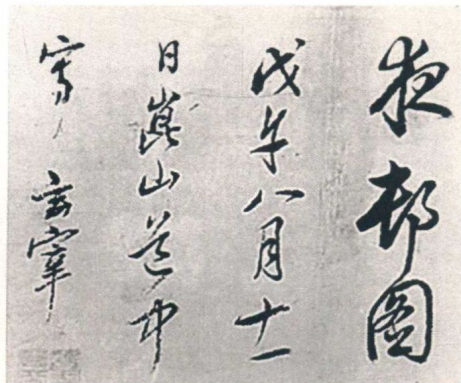 夜邨图
戊午八月十一
日嵩山道中
写 玄宰